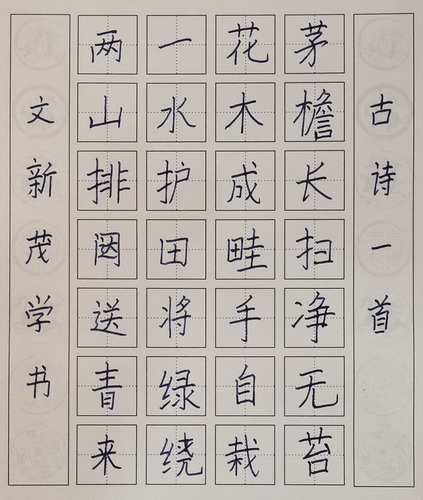 古诗一首
茅檐长扫净无苔
花木成畦手自栽
一水护田将绿绕
两山排闼送青来
文新茂学书